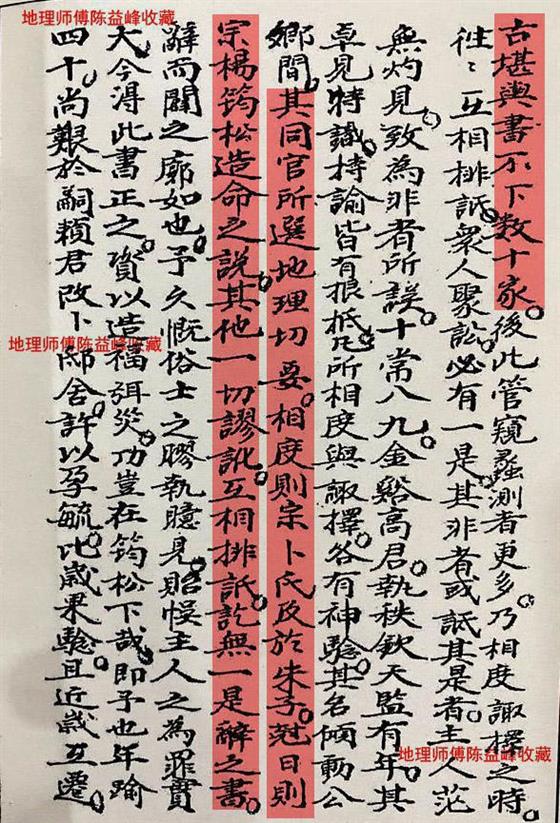 地理师傅陈益峰收藏
古堪舆書不下数十家。後此管窺蠡測者更多。乃相度諏擇之時。
往〻互相排詆。衆人聚訟。必有一是。其非者或詆其是者。主人茫
無灼見。致為非者所誤。十常八九。金谿高君。執秩欽天監有年。其
卓見特識。持論皆有根抵。凡所相度與諏擇。各有神驗。其名傾動公
鄉間。其同官所選地理切要。相度則宗卜氏及於朱子。尅日則
宗楊筠松造命之說。其他一切謬訛。互相排詆。訖無一是辭之書。
辭而闢之廓如也。予久慨俗士之膠執臆見。貽悮主人之為罪實
大。今得此書正之。資以造福弭災。功豈在筠松下哉。即予也年踰
四十。尚艱於嗣。賴君改卜邸舍。許以孕毓。比歲果驗。且近歲互遷。
地理师傅陈益峰收藏
地理师傅陈益峰收藏